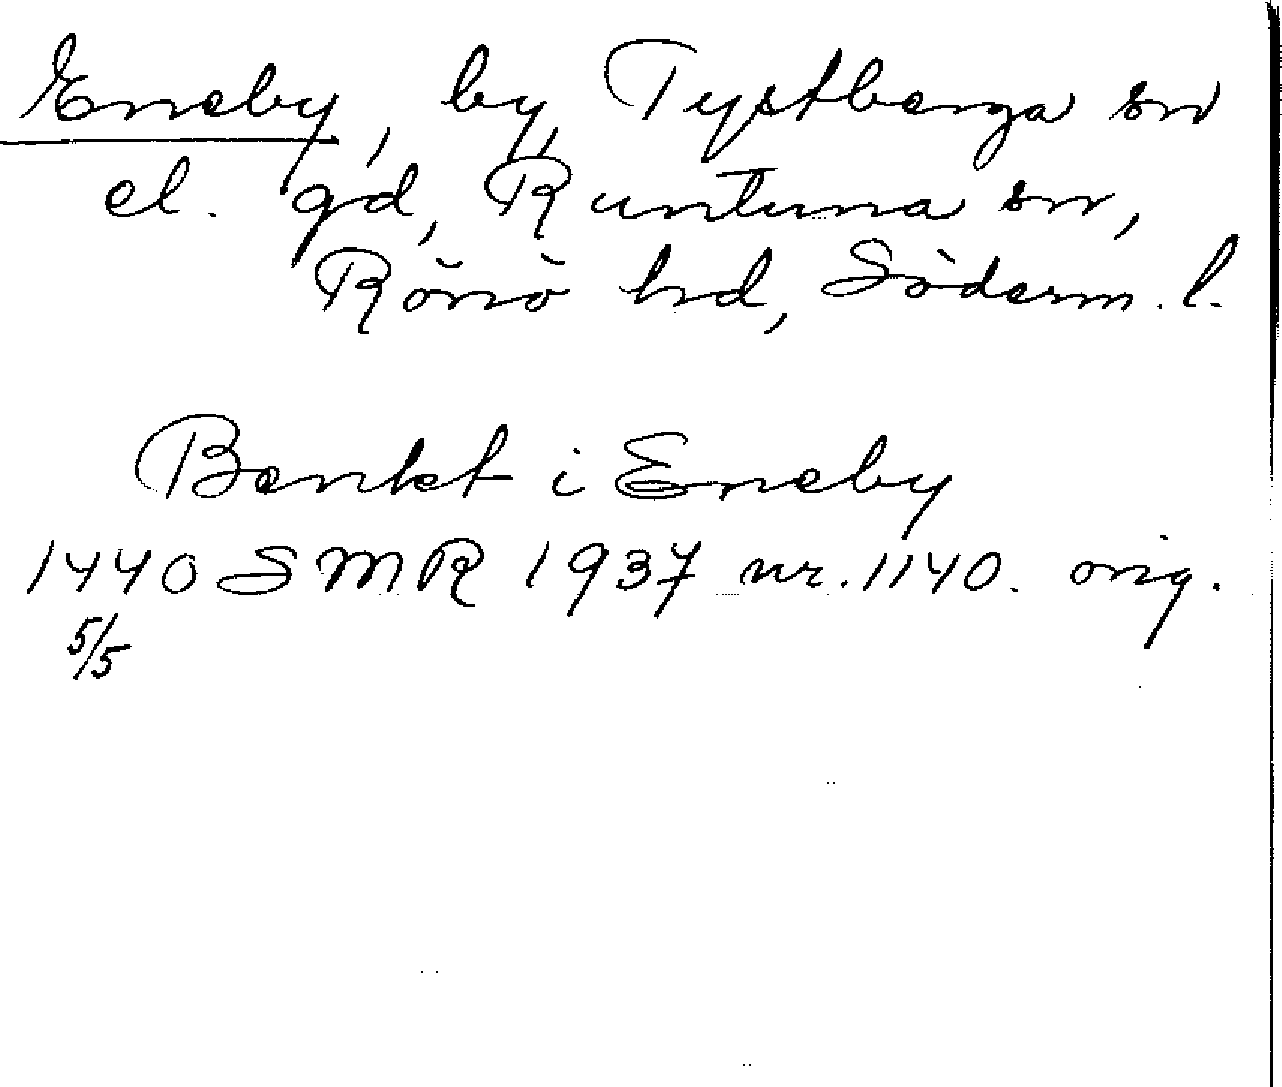 Eneby, by, Tystberga sn
el. gd, Runtuna sn,
Rönö hd, Söderm. l.
Benkt i Eneby
1440 SMR 1937 nr. 1140. orig.
5/5